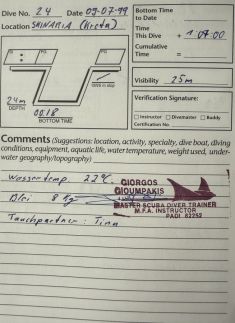 Dive No. 24 Date 09-07-99
Location SKINARIA (Kreta)
Bottom Time
to Date
Time
This Dive + 1:07:00
Cumulative
Time =
SI PG PG
24 m
DEPTH
00:18
BOTTOM TIME
Visibility 25 m
Verification Signature:
Instructor Divemaster Buddy
Certification No.
Comments (Suggestions: location, activity, specialty, dive boat, diving
conditions, equipment, aquatic life, water temperature, weight used, under-
water geography/topography)
Wassertemp. 22°C
Blei 8 kg
Tauchpartner: Tina
GIORGOS
GIOUMPAKIS
MASTER SCUBA DIVER TRAINER
M.F.A. INSTRUCTOR
PADI 82252